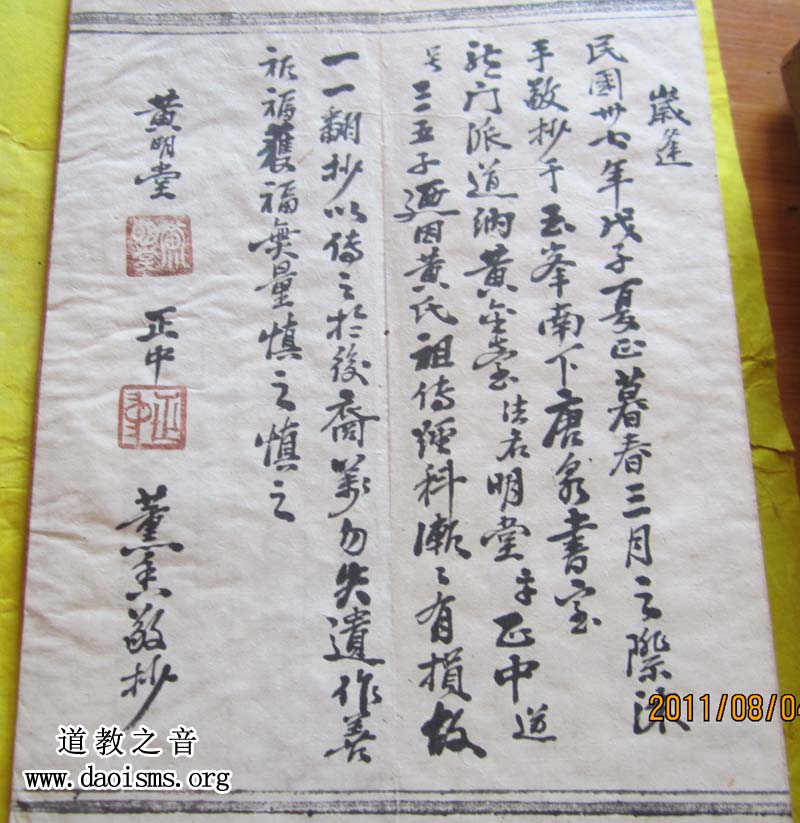 歲逢
民國卅七年戊子夏正暮春三月之際沐
手敬抄于玉峯南下唐泉書室
龍门派道衲黄金堂法名明堂字正中道
号三五子迺因黄氏祖傳經科漸〻有損故
一一翻抄以傳之於後裔萬勿失遺作善
祈福獲福無量慎之慎之
黄明堂
正中
薰香敬抄
正中
2011/08/04
道教之音
www.daoisms.org